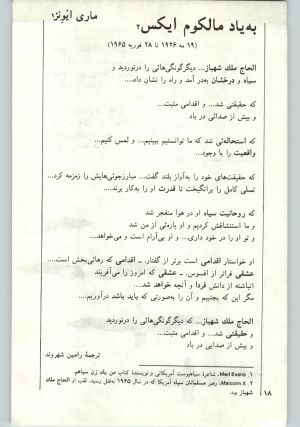 ماری ایونز۱
به‌یاد مالکوم ایکس۲
(۱۹ مه ۱۹۲۶ تا ۲۸ فوریه ۱۹۶۵)
الحاج ملك شهباز... دیگرگونگی‌هائی را درنوردید و
سیاه و درخشان به‌در آمد و راه را نشان داد....
که حقیقتی شد... و اقدامی مثبت...
و بیش از صدائی در باد
که استحاله‌ئی شد که ما توانستیم ببینیم... و لمس کنیم...
واقعیت را با وجود...
که حقیقت‌های خود را به‌آواز بلند گفت... مبارزجوئی‌هایش را زمزمه کرد...
نسلی کامل را برانگیخت تا قدرت او را به‌کار برند....
که روحانیت سیاه او در هوا منفجر شد
و ما استنشاقش کردیم و او پاره‌ئی از من شد
و تو او را در خود داری... و او بی‌آرام است و می‌خواهد...
او خواستار اقدامی است برتر از گفتار. ـ اقدامی که رهائی‌بخش است....
عشقی فراتر از افسوس. ـ عشقی که امروز را می‌آفریند
انباشته از دانش فردا و آنچه خواهد شد....
مگر این که بجنبیم و آن را به‌صورتی که باید باشد درآوریم....
الحاج ملك شهباز... که دیگرگونگی‌هائی را درنوردید
و حقیقتی شد... و اقدامی مثبت...
و بیش از صدایی در باد
ترجمهٔ رامین شهروند
۱. Mari Evans، شاعرهٔ سیاهپوست آمریکائی و نویسندهٔ کتاب من یك زن سیاهم
۲. Malcolm X، رهبر مسلمانان سیاه آمریکا که در سال ۱۹۶۵ به‌قتل رسید. لقب او الحاج ملك
شهباز بود.
۱۸